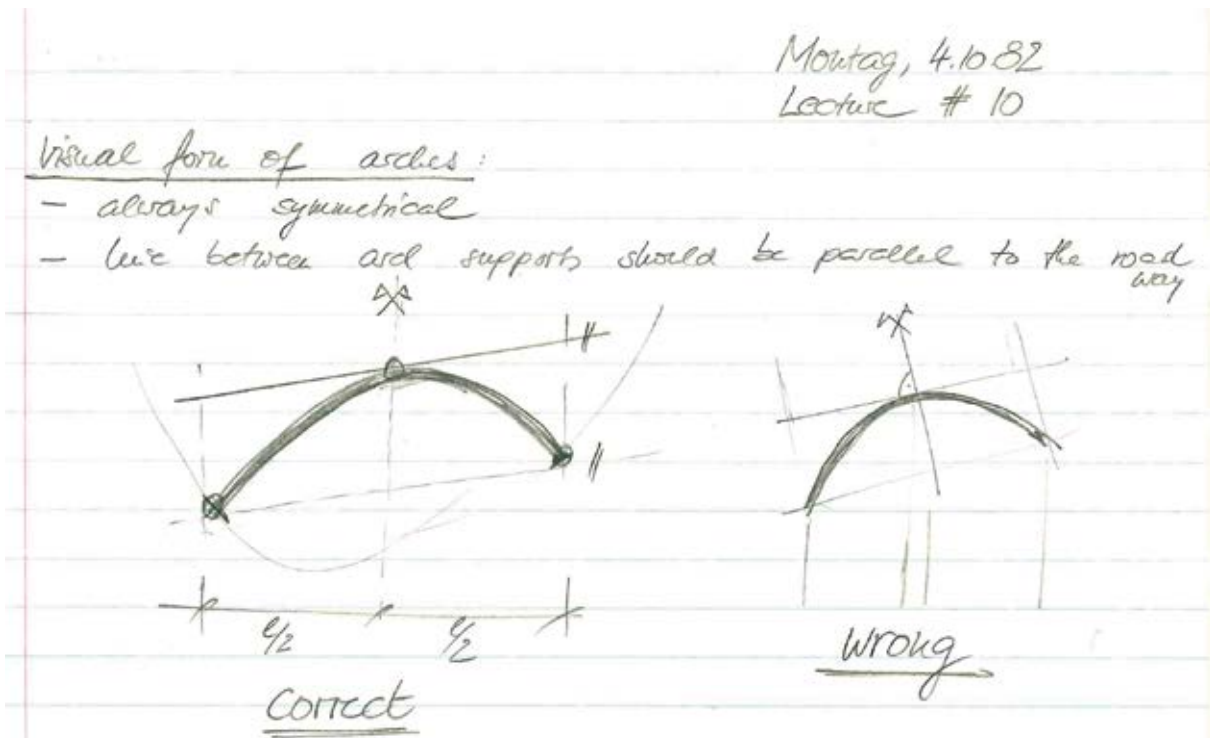 Montag, 4.10 82
Lecture # 10
Visual form of arches :
- always symmetrical
- line between arch supports should be parallel to the road
way
//
//
l/2 l/2
correct
wrong